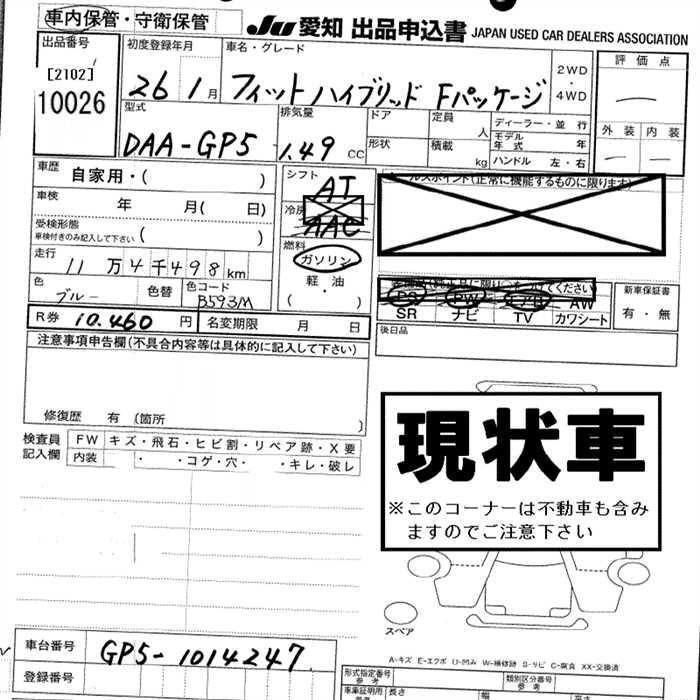 車内保管・守衛保管
JU 愛知 出品申込書 JAPAN USED CAR DEALERS ASSOCIATION
出品番号
[2102]
10026
初度登録年月
26 1月
車名・グレード
フィットハイブリッド Fパッケージ
2WD
・
4WD
評価点
外装 内装
型式
DAA-GP5
排気量
1.49 CC
ドア
定員
人
形状
積載
kg
ディーラー・並行
モデル年式 年
ハンドル 左・右
車歴
自家用・( )
車検
年 月( 日)
受検形態
車検付きのみ記入して下さい ( )
走行
11万4千498km
色
ブルー
色替
色コード
B593M
R券 10.460円
名変期限 月 日
シフト
AT
冷房
AAC
燃料
ガソリン
軽・油
( ・ )
セールスポイント(正常に機能するものに限ります)
PS PW エアB AW
SR ナビ TV カワシート
新車保証書
有・無
後日品
注意事項申告欄(不具合内容等は具体的に記入して下さい)
修復歴 有 〔箇所 〕
検査員記入欄
FW キズ・飛石・ヒビ割・リペア跡・X要
内装 ・ ・コゲ・穴・ ・キレ・破レ
現状車
※このコーナーは不動車も含み
ますのでご注意下さい
スペア
A-キズ E-エクボ U-凹み W-補修跡 S-サビ C-腐食 XX-交換済
車台番号 GP5-1014247
登録番号
形式指定番号
参考
類別区分番号
参考
車庫証明用
参考
長さ
幅
高さ